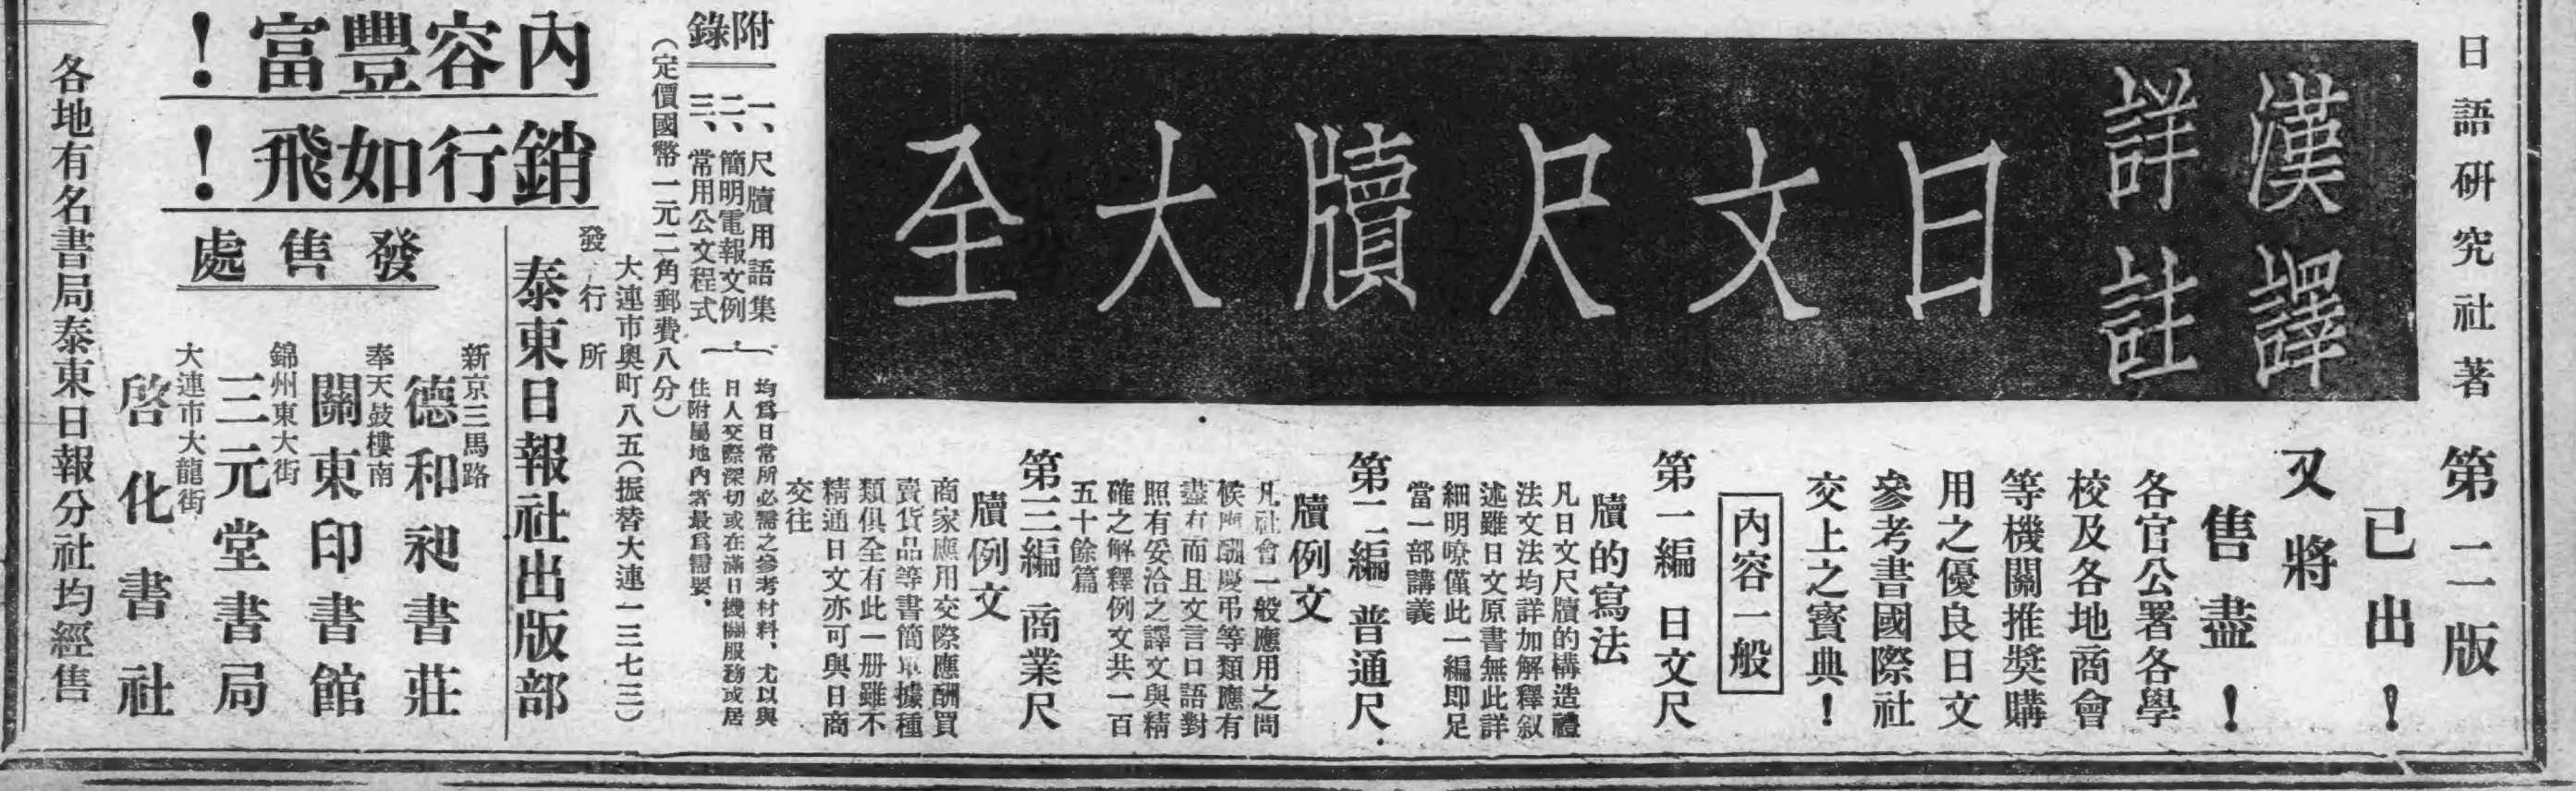 日語研究社著
漢譯
詳註
日文尺牘大全
第二版
已出!
又將
售盡!
各官公署各學
校及各地商會
等機關推獎購
用之優良日文
參考書國際社
交上之寶典!
內容一般
第一編 日文尺
牘的寫法
凡日文尺牘的構造禮
法文法均詳加解釋叙
述雖日文原書無此詳
細明暸僅此一編即足
當一部講義
第二編 普通尺
牘例文
凡社會一般應用之問
候 酬慶弔等類應有
盡有而且文言口語對
照有妥洽之譯文與精
確之解釋例文共一百
五十餘篇
第三編 商業尺
牘例文
商家應用交際應酬買
賣貨品等書簡單據種
類俱全有此一册雖不
精通日文亦可與日商
交往
附錄
一、尺牘用語集
二、簡明電報文例
三、常用公文程式
均爲日常所必需之參考材料、尤以與
日人交際深切或在滿日機關服務或居
住附屬地內者最爲需要、
(定價國幣一元二角郵費八分)
大連市奧町八五(振替大連一三七三)
發行所
泰東日報社出版部
內容豐富!
銷行如飛!
發售處
新京三馬路
德和昶書莊
奉天鼓樓南
關東印書館
錦州東大街
三元堂書局
大連市大龍街
啓化書社
各地有名書局泰東日報分社均經售